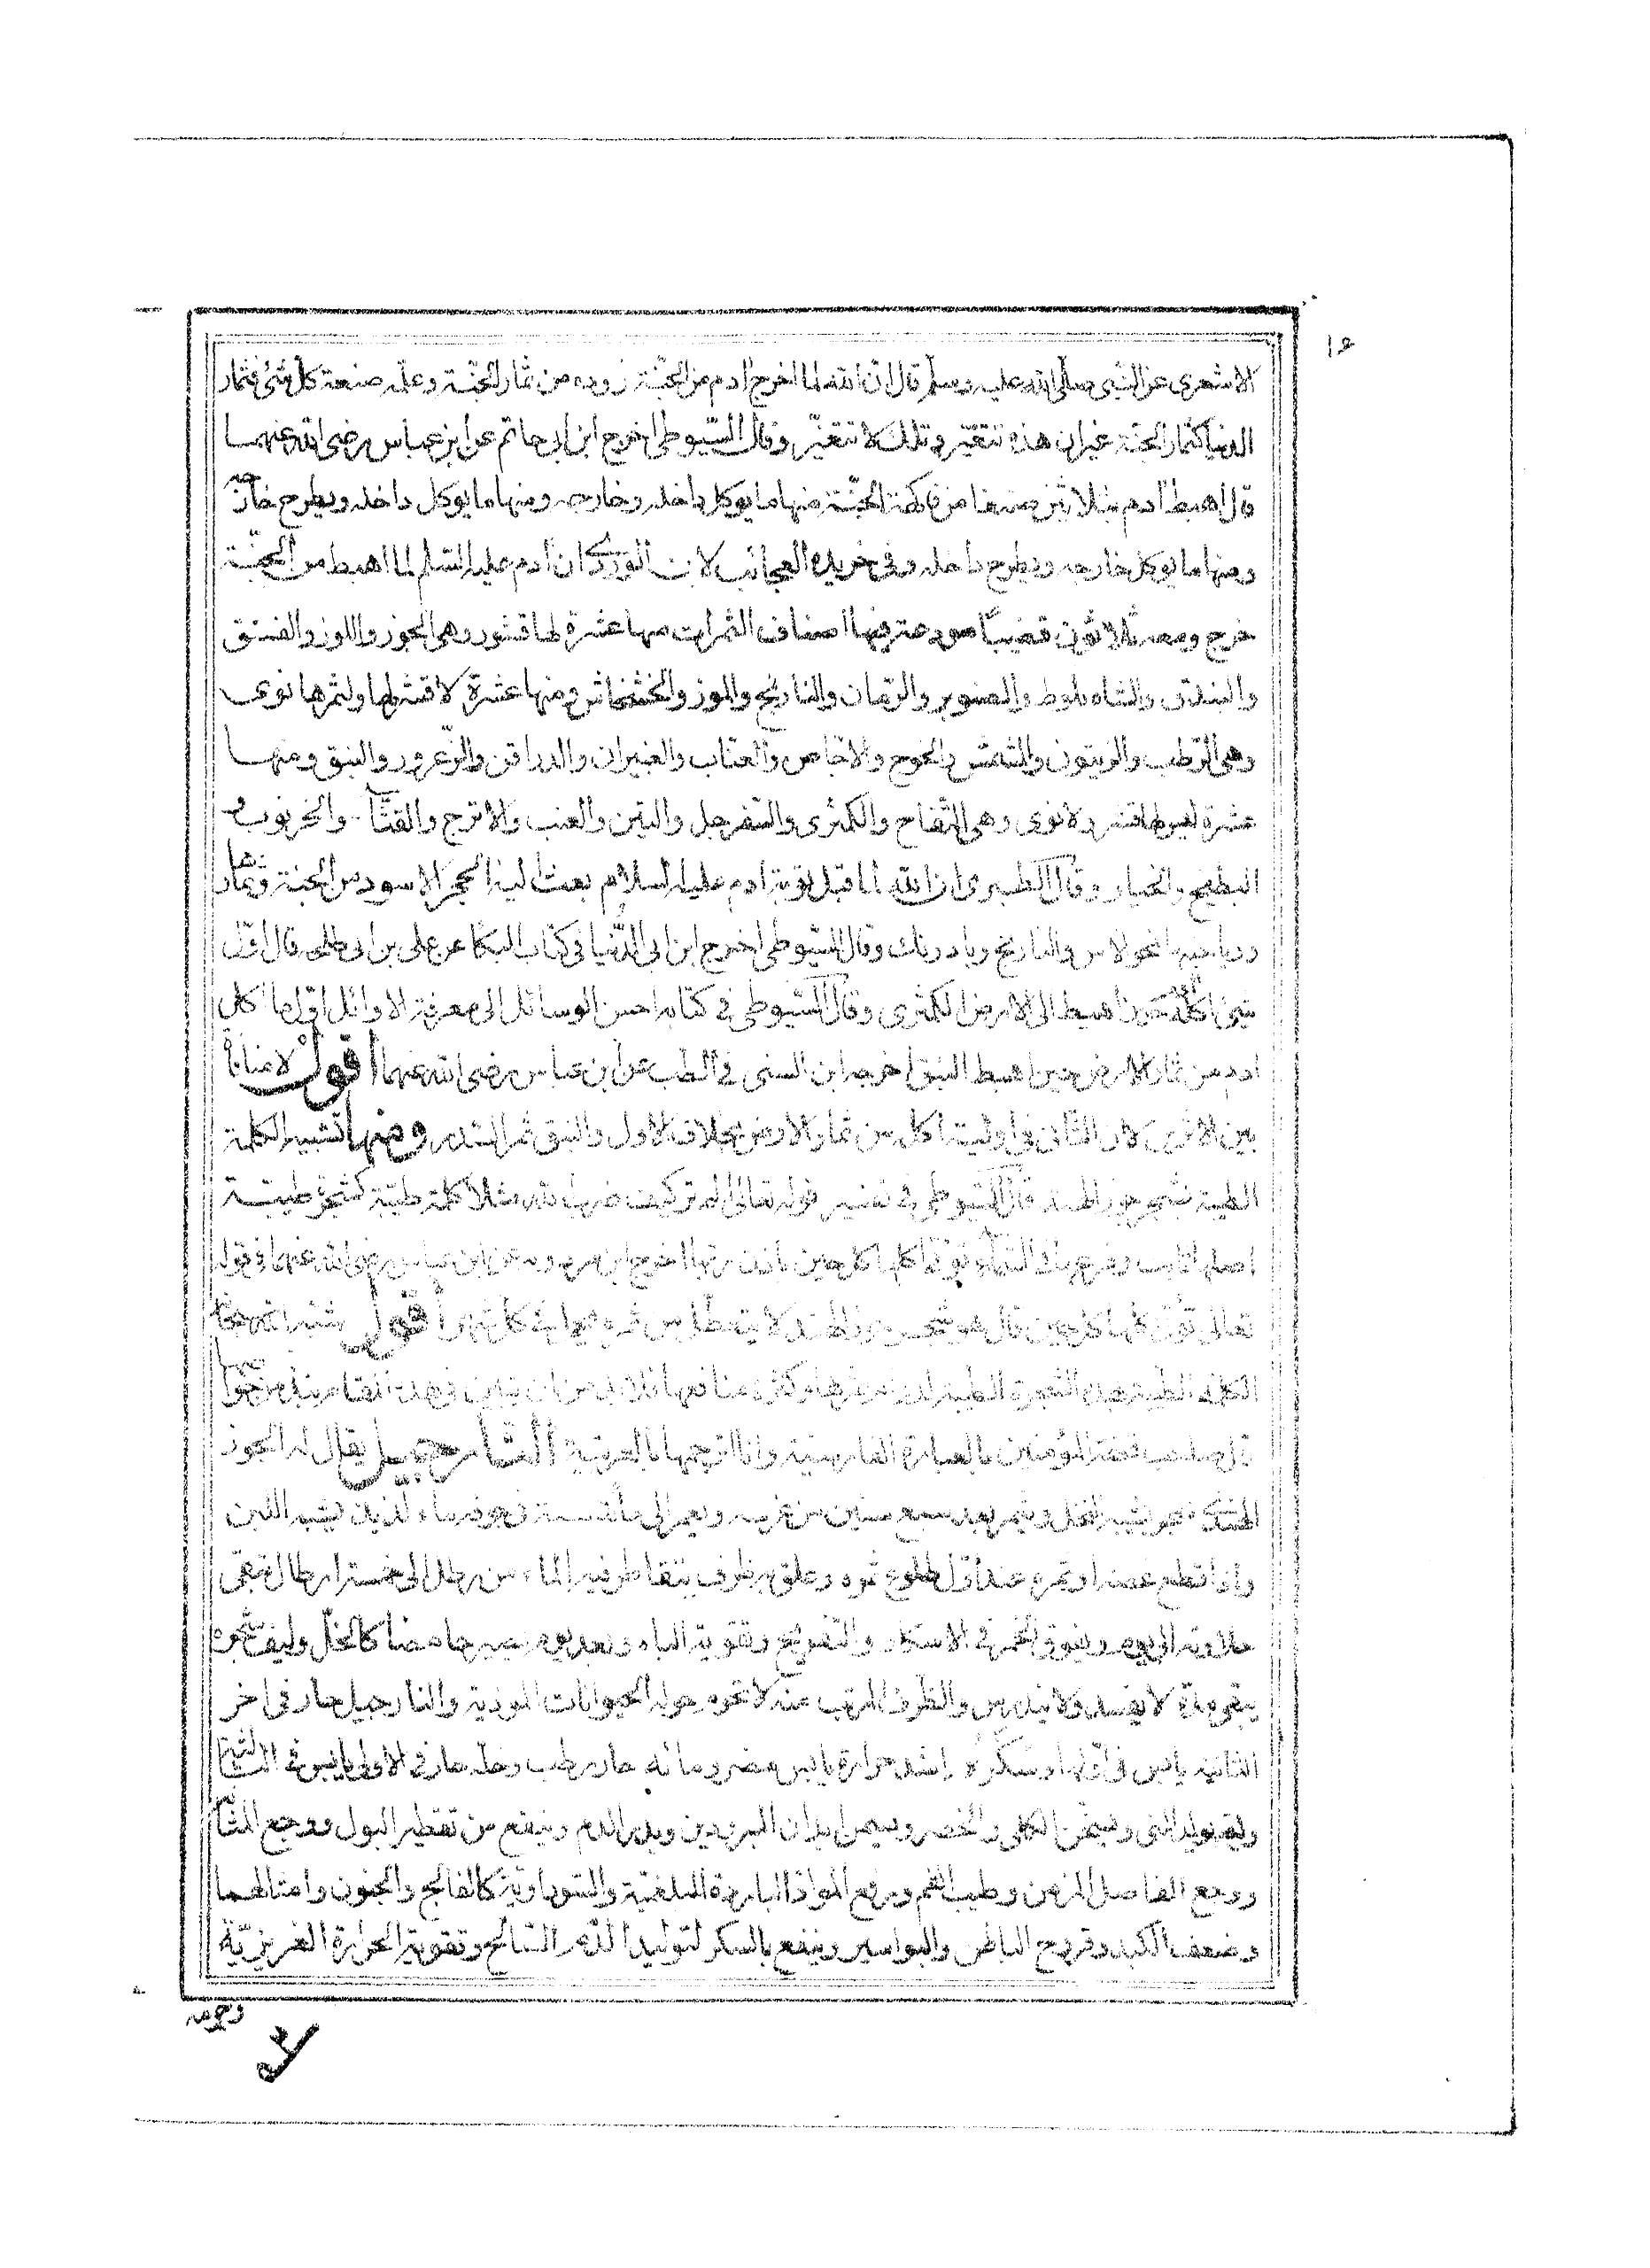 الاشعرى عن النبى صلى الله عليه وسلم قال ان الله لما اخرج ادم من الجنة زوده من ثمار الجنة وعلمه صنعة كل شئ فثمار
الدنيا كثمار الجنة غير ان هذه تتغير وتلك لا تتغير وقال السيوطى اخرج ابن ابى حاتم عن ابن عباس رضى الله عنهما
قال اهبط ادم بثلاثين صنفا من فاكهة الجنة منها ما يوكل داخله وخارجه ومنها ما يوكل داخله ويطرح خارجه
ومنها ما يوكل خارجه ويطرح داخله وفى خريدة العجائب لابن الوردى ان ادم عليه السلم لما اهبط من الجنة
خرج ومعه ثلاثون قضيبا مودعة فيها اصناف الثمرات منها عشرة لها قشور وهى الجوز واللوز والفستق
والبندق والشاه بلوط والصنوبر والرمان والنارنج والموز والخشخاش ومنها عشرة لا قشر لها ولثمرها نوى
وهى الرطب والزيتون والمشمش والخوخ والاجاص والعناب والغبيران والدراقن والزعرور والنبق ومنها
عشرة ليس لها قشر ولا نوى وهى التفاح والكمثرى والسفرجل والتين والعنب والاترج والقثاء والخرنوب و
البطيخ والخيار وقال الطبرى ان الله لما قبل توبة ادم عليه السلام بعث اليه الحجر الاسود من الجنة وثمارها
ورياحينها نحو الاس والنارنج وبادرنك وقال السيوطى اخرج ابن ابى الدنيا فى كتاب البكا عن على بن ابى طلحة قال اول
شئ اكله ادم حين اهبط الى الارض الكمثرى وقال السيوطى فى كتابه احسن الوسائل الى معرفة الاوائل اول ما اكل
ادم من ثمار الارض حين اهبط النبق اخرجه ابن السنى فى الطب عن ابن عباس رضى الله عنهما اقول لا منافاة
بين الاثرين لان الثانى فى اولية اكل من ثمار الارض بخلاف الاول والنبق ثمر السدر ومنها تشبيه الكلمة
الطيبة بشجر جوز الهند قال السيوطى فى تفسير قوله تعالى الم تر كيف ضرب الله مثلا كلمة طيبة كشجرة طيبة
اصلها ثابت وفرعها فى السماء تؤتى اكلها كل حين باذن ربها اخرج ابن مردويه عن ابن عباس رضى الله عنهما فى قوله
تعالى تؤتى اكلها كل حين قال هو شجر جوز الهند لا يتعطل من ثمره تحمل فى كل شهر اقول شبه الله تعالى
الكلمة الطيبة بهذه الشجرة الطيبة
قال صاحب تحفة المؤمنين بالعبارة الفارسية وانا اترجمها بالعربية النارجيل يقال له الجوز
الهندى شجره يشبه النخل ويثمر بعد سبع سنين من غرسه ويعمر الى مائة سنة
واذا قطع غصنه او ثمره عند اول طلوع ثمره وعلق بظرف يتقاطر فيه الماء من رطل الى خمسة ارطال تبقى
حلاوته الى يوم ويفوق الخمر فى الاسكار والتفريح وتقوية الباه وبعد يوم يصير حامضا كالخل وليف شجره
بقوى مدة لا يفسد ولا يندرس والظرف المرتب منه لا تحوم حوله الحيوانات الموذية والنارجيل حار فى اخر
الثانية يابس فى اولها وسكره اشد حرارة يابس مضر ومائه حار رطب وخله حار فى الاولى يابس فى الثانية
وله توليد المنى وتسخين الكلى والخصر ويسمن ابدان المبرودين ويدر الدم وينفع من تقطير البول ووجع المثانة
ووجع المفاصل المزمن وطيب الفم ويرفع المواد الباردة البلغمية والسوداوية كالفالج والجنون وامثالهما
وضعف الكبد وقروح الباطن والبواسير وينفع بالسكر لتوليد الدم السانح وتقوية الحرارة الغريزية